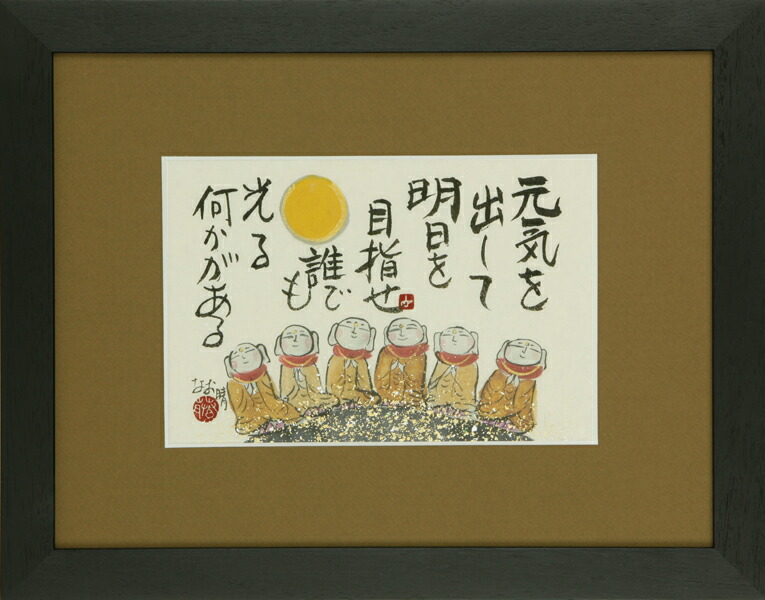 元気を
出して
明日を
目指せ
誰でも
光る
何かがある
なお晴